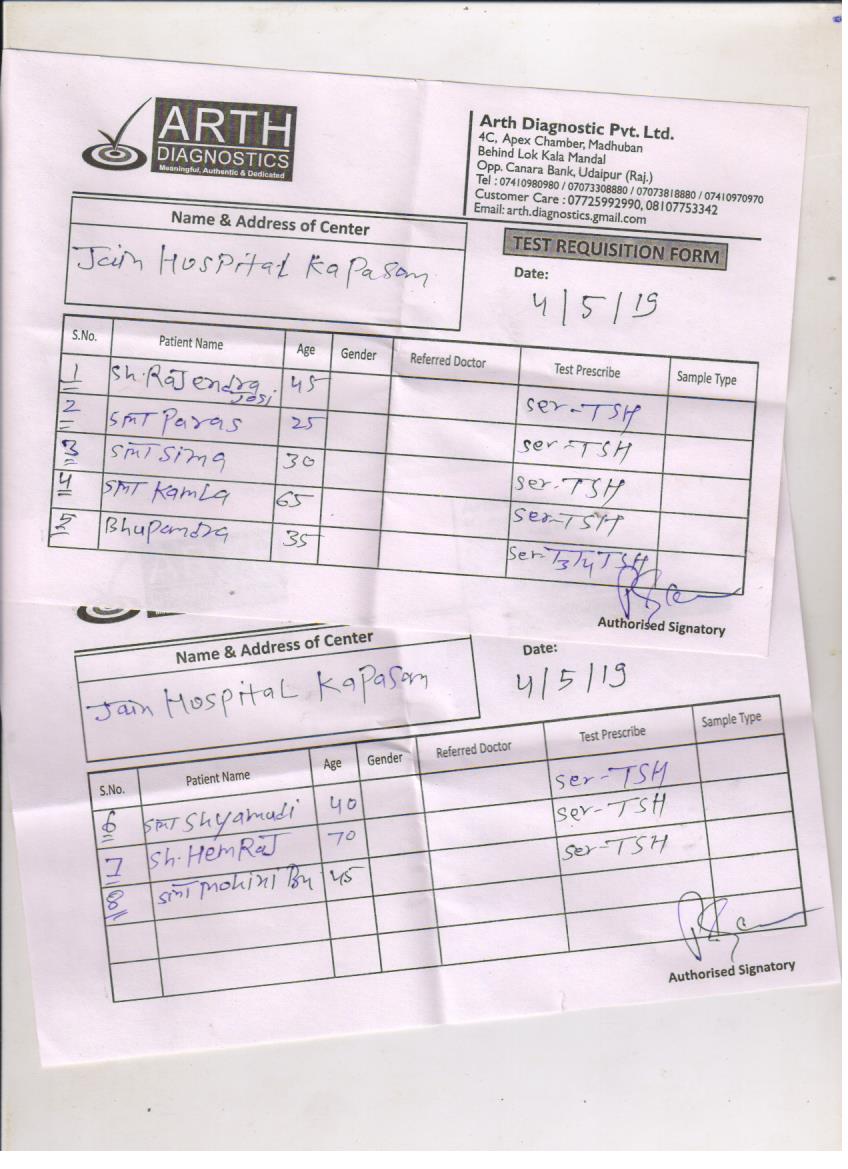 ARTH
DIAGNOSTICS
Meaningful, Authentic & Dedicated
Arth Diagnostic Pvt. Ltd.
4C, Apex Chamber, Madhuban
Behind Lok Kala Mandal
Opp. Canara Bank, Udaipur (Raj.)
Tel : 07410980980 / 07073308880 / 07073818880 / 07410970970
Customer Care : 07725992990, 08107753342
Email: arth.diagnostics.gmail.com
Name & Address of Center
Jain HOSPital KaPasan
TEST REQUISITION FORM
Date:
4/5/19
S.No. Patient Name Age Gender Referred Doctor Test Prescribe Sample Type
1 Sh. RaJendra Josi 45 ser-TSH
2 SMT Paras 25 ser-TSH
3 SMT Sima 30 ser-TSH
4 SMT Kamla 65 ser-TSH
5 Bhupandra 35 ser-T3 T4 TSH
Authorised Signatory
Name & Address of Center
Jain HOSPitaL KaPasan
Date:
4/5/19
S.No. Patient Name Age Gender Referred Doctor Test Prescribe Sample Type
6 SMT Shyamudi 40 ser-TSH
7 Sh. HemRaJ 70 ser-TSH
8 SMT mohini Bn 45 ser-TSH
Authorised Signatory